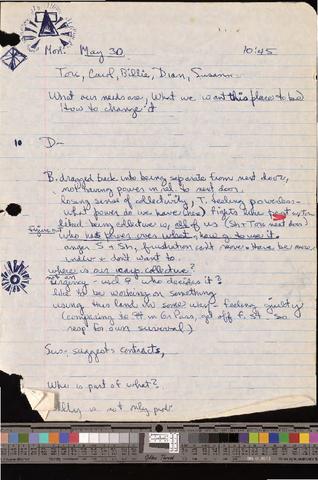 Mon. May 30 10:45
Tori, Carol, Billie, Dian, Susann
What our needs are, What we want this place to be
How to change it
10 D—
B. dragged back into being separate from next door,
not having power in rel to next door
losing sense of collectivity, T. feeling powerless—
what power do we have (here) fights like
liked being collective w, all of us (Sh+Tori next door)
who has power over what, how to use it
anger S + Sh, frustration can't move + have be more
indiv + don't want to.
where is our collective?
urgency - who decides it?
like to be working on something
using this land in some way - feeling guilty
(comparing to in Gr Pass, get off f. st. so
resp for own survival)
Sus- suggests contracts,
Who is part of what?
not only